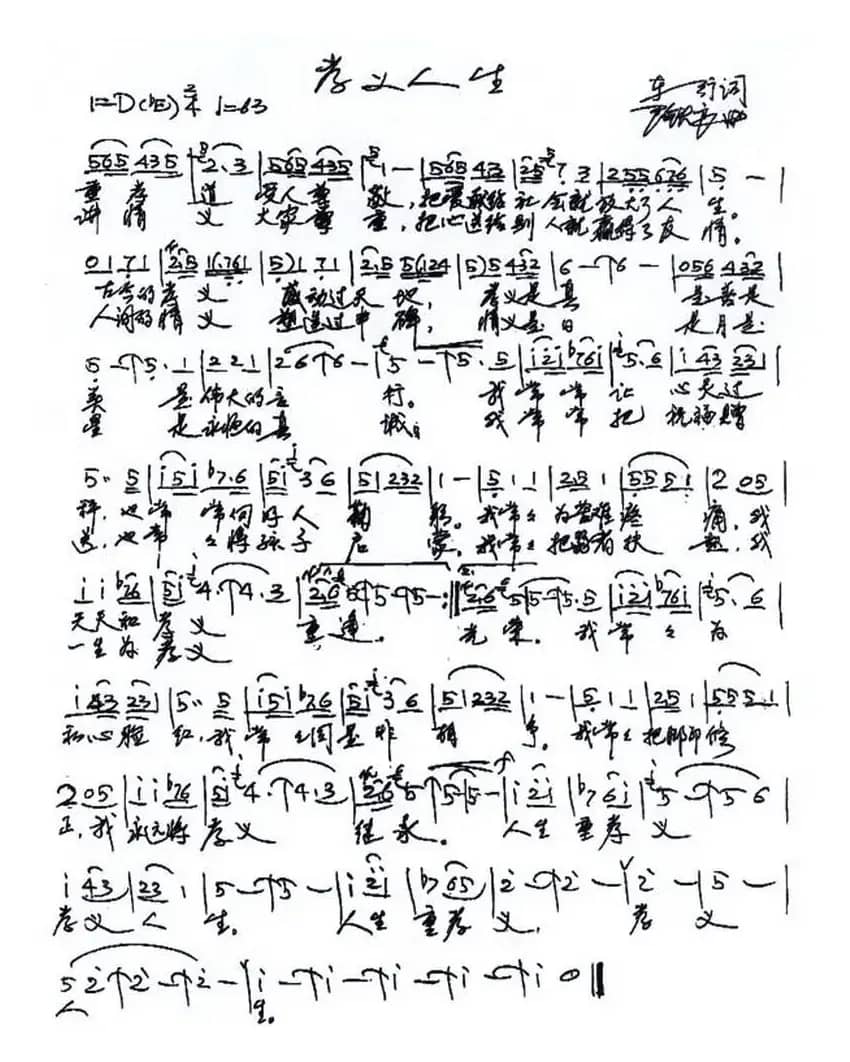 孝义人生
1=D(bE) 2/4 ♩=63
词
565 435 | 2. 3 | 565 435 | 1 — | 565 43 | 25 7. 2 | 255 676 | 5 — |
重孝道 受人尊敬,把爱献给社会就放大了人生。
讲情义 大家尊重,把心送给别人就赢得了友情。
01 71 | 2.5 1(761 | 5)1 71 | 2.5 5(124 | 5)5 432 | 6 — | 6 — | 056 432 |
古今的孝义 感动过天地,孝义是真 是善是
人间的情义 塑造过丰碑,情义是日 是月是
5 — | 5. 1 | 2 2 1 | 2 6 | 6 — | 5 — | 5. 5 | i2i b76i | 5. 6 | i 43 231 |
美 是伟大的言行。 我常常让心灵过
星 是永恒的真诚; 我常常把祝福赠
5.. 5 | i5i b7.6 | 5i 3 6 | 5 1232 | 1 — | 5 1 1 | 25 1 | 555 1 | 2 05 |
秤,也常常向好人鞠躬。我常々为苦难疼痛,我
送,也常々将孩子启蒙。我常々把弱者扶起,我
i i b76 | 5i 4. | 4. 3 | 26 5 | 5 — | 5 — :‖ 26 5 | 5 — | 5. 5 | i2i b76i | 5. 6 |
天天和孝义 重逢。 光荣。 我常々为
一生为孝义
i 43 231 | 5.. 5 | i5i b76 | 5i 3 6 | 5 1232 | 1 — | 5 1 1 | 25 1 | 555 1 |
私心脸红,我常々同是非 争。 我常々把脚印修
2 05 | i i b76 | 5i 4. | 4. 3 | 26 5 | 5 — | 5 — | i 2i | b7 6i | 5 — | 5 6 |
正,我永远将孝义 继承。 人生重孝义
i 43 | 23 1 | 5 — | 5 — | i 2i | b7 65 | 2 — | 2 — | 2 — | 5 — |
孝义人生。 人生重孝义, 孝义
5 2 | 2 — | 2 — | i — | i — | i — | i — | i 0 ‖
人 生。